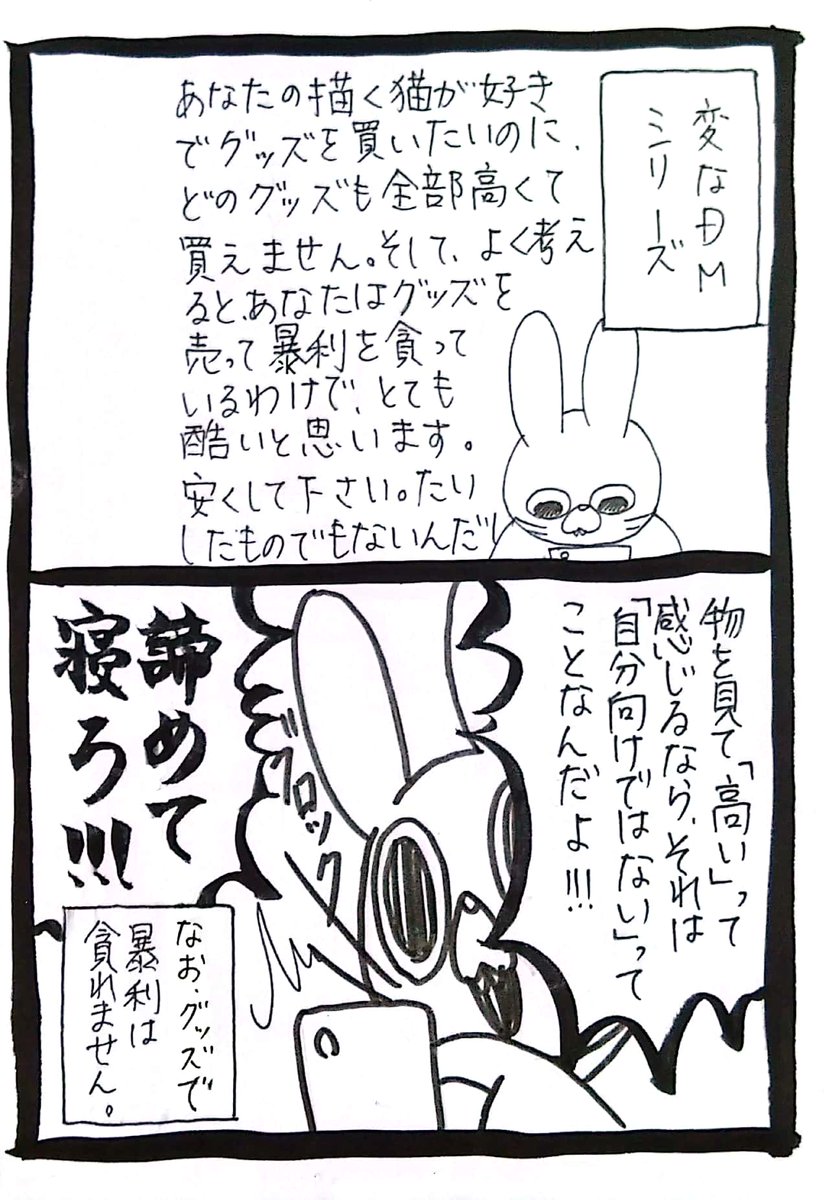 変なDM
シリーズ
あなたの描く猫が好き
でグッズを買いたいのに、
どのグッズも全部高くて
買えません。そして、よく考え
ると、あなたはグッズを
売って暴利を貪って
いるわけで、とても
酷いと思います。
安くして下さい。たい
したものでもないんだし
物を見て「高い」って
感じるなら、それは
「自分向けではない」って
ことなんだよ!!!
ブロック
諦めて
寝ろ!!!
なお、グッズで
暴利は
貪れません。